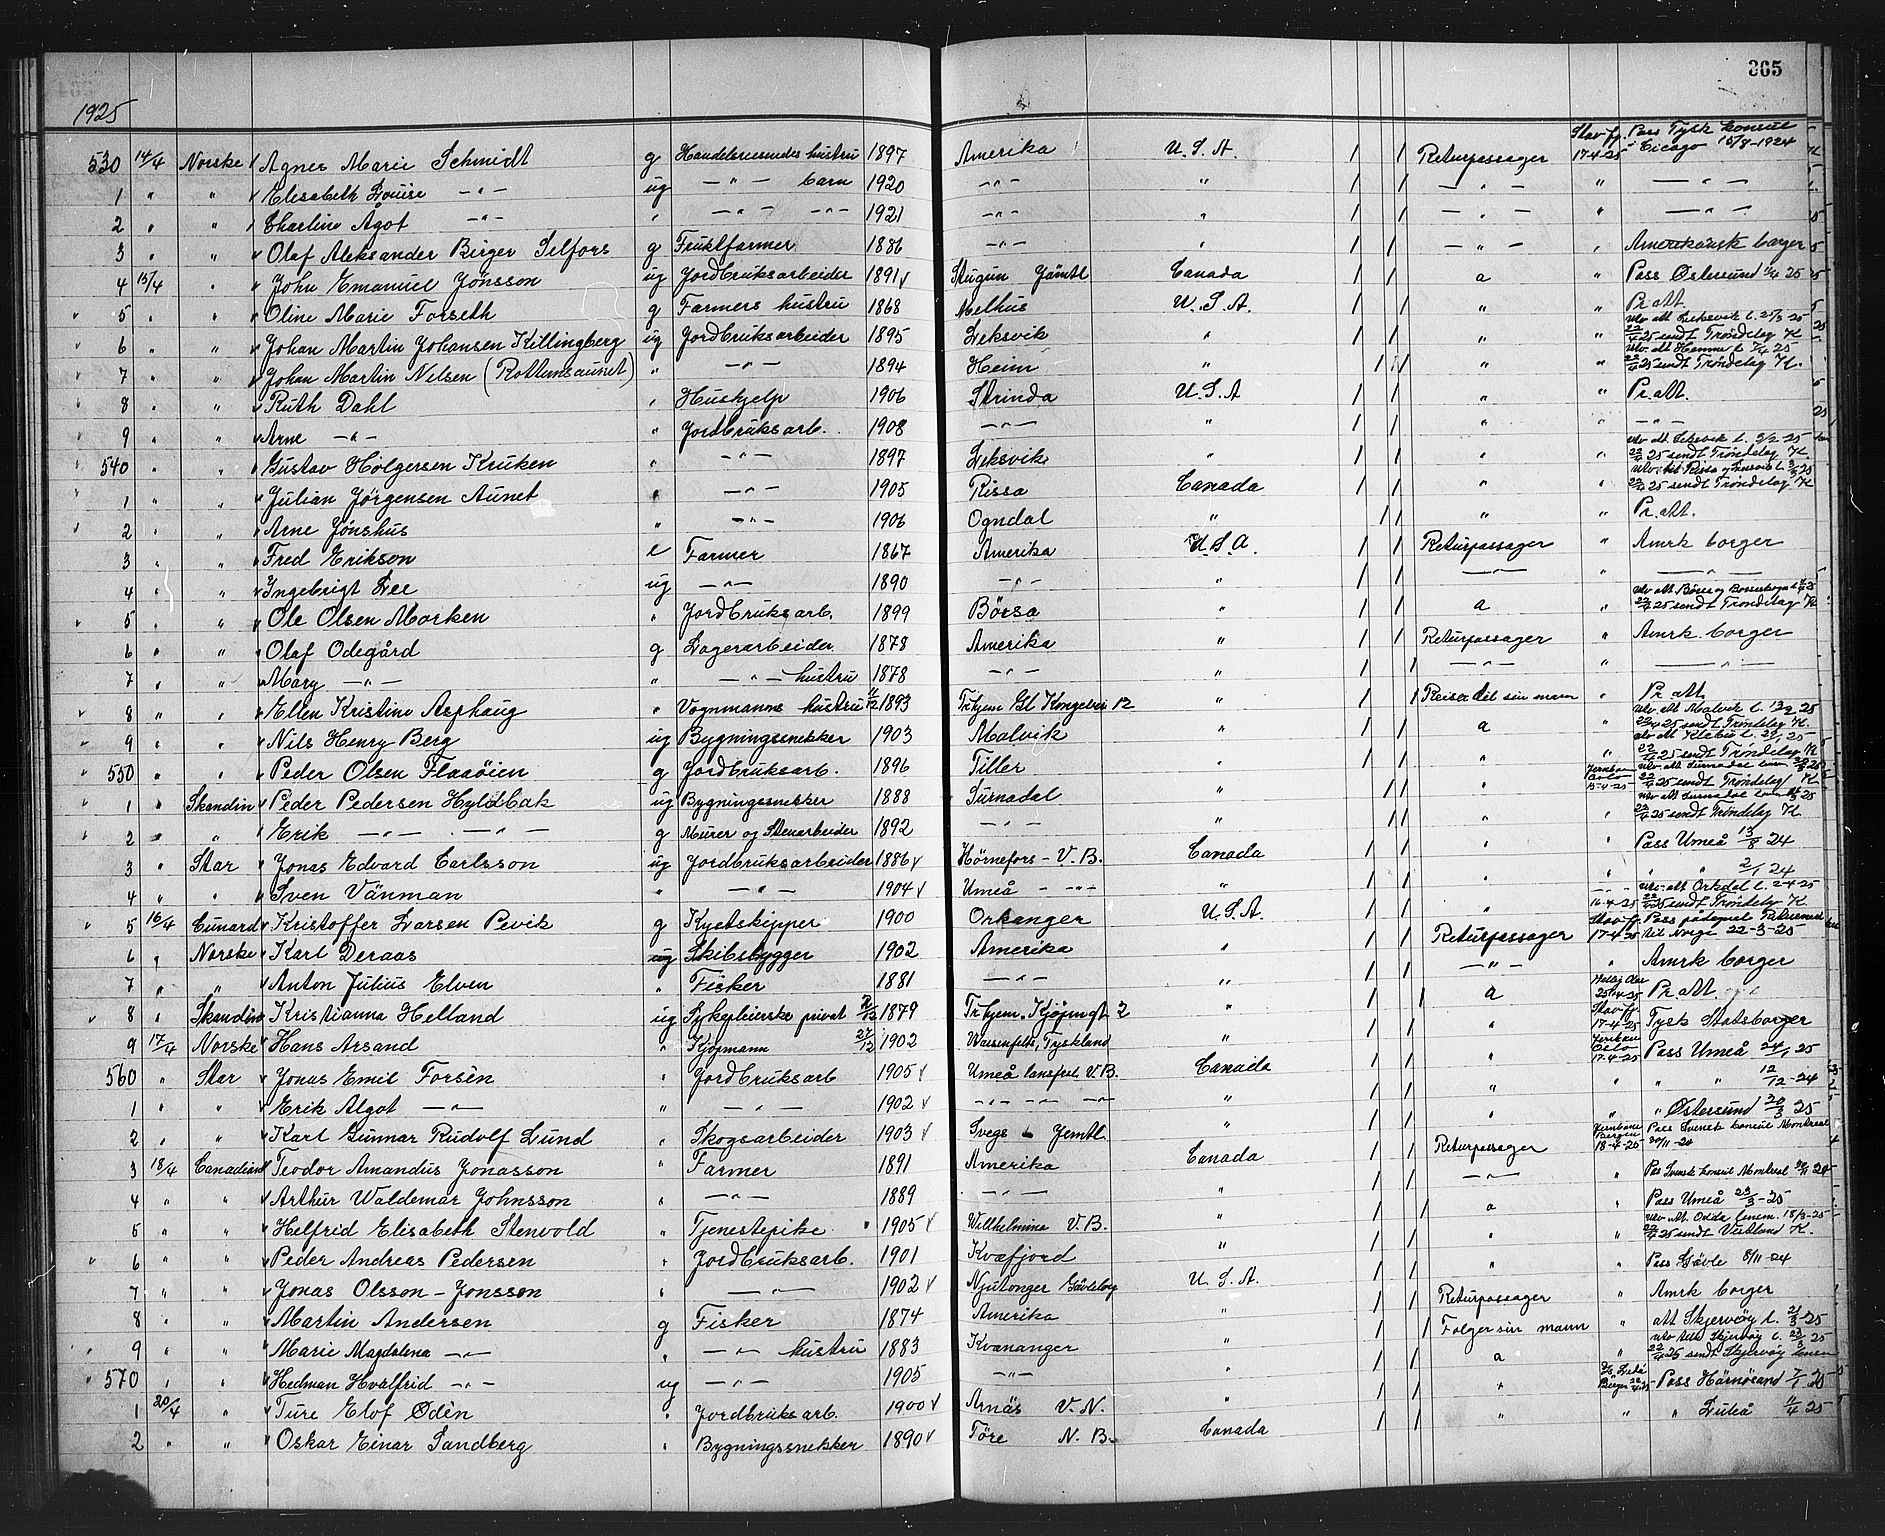 1925
365
530 14/4 Norske Agnes Marie Schmidt g Handelsreisendes hustru 1897 Amerika U.S.A. 1 1 Returpassager Stav.fj. 17-4-25 Pass Tysk konsul i Cicago 15/8-1924
1 " " Elisabeth Louise -"- ug -"- barn 1920 -"- " 1 1 -"- " -"-
2 " " Charline Ågot -"- " -"- -"- 1921 -"- " 1 1 -"- " -"-
3 " " Olaf Aleksander Birger Selfors g Fruktfarmer 1886 -"- " 1 1 -"- " Amerikansk borger
4 15/4 " John Emanuel Jønsson ug Jordbruksarbeider 1891 v Stugun Jämtl Canada 1 1 a " Pass Østersund 1/4 25
" 5 " " Oline Marie Forseth g Farmers hustru 1868 Melhus U.S.A. 1 1 " " Pr. att.
" 6 " " Johan Martin Johansen Killingberg ug Jordbruksarbeider 1895 Leksvik " 1 1 " " utv. att Leksvik l. 25/3 25 22/4 25 sendt Trøndelag K
" 7 " " Johan Martin Nelsen (Rottemsaunet) " -"- 1894 Heim " 1 1 " " utv. att Hemne l. 7/4 25 22/4 25 sendt Trøndelag K.
" 8 " " Ruth Dahl " Hushjelp 1906 Strinda U.S.A 1 1 " " Pr. att.
" 9 " " Arne -"- " Jordbruksarb. 1908 " 1 1 " " -"-
" 540 " " Gustav Holgersen Kruken " -"- 1897 Leksvik " 1 1 " " utv att Leksvik l. 2/2 25 22/4 25 sendt Trøndelag K.
" 1 " " Julian Jørgensen Aunet " -"- 1905 Rissa Canada 1 1 " " 22/4 25 sendt Trøndelag K
" 2 " " Arne Jønshus " -"- 1906 Ogndal " 1 1 " " Pr. att.
3 " " Fred Erikson e Farmer 1867 Amerika U.S.A. 1 1 Returpassager " Amrk borger
4 " " Ingebrigt Lee ug -"- 1890 -"- " 1 1 -"- " -"-
" 5 " " Ole Olsen Morken " Jordbruksarb. 1899 Börsa " 1 1 a " 22/4 25 sendt Trøndelag K
6 " " Olaf Odegård g Lagerarbeider 1878 Amerika " 1 1 Returpassager " Amrk. borger
7 " " Mary -"- " -"- hustru 1878 -"- " 1 1 -"- " -"-
" 8 " " Ellen Kristine Asphaug " Vognmanns hustru 11/12 1893 Trhjem Gl Kongevei 12 " 1 1 Reiser til sin mann " Pr. att.
" 9 " " Nils Henry Berg ug Bygningssnekker 1903 Malvik " 1 1 a " utv. att Malvik l. 13/2 25 22/4 25 sendt Trøndelag K.
" 550 " " Peder Olsen Flaaöien g Jordbruksarb. 1896 Tiller " 1 1 " " utv att Klæbu l. 22/1 25 22/4 25 sendt Trøndelag K
" 1 " Skandin Peder Pedersen Hyldbak ug Bygningssnekker 1888 Surnadal " 1 1 " Jernban Oslo 15-4-25 22/4 25 sendt Trøndelag K
" 2 " " Erik -"- -"- g Murer og Stenarbeider 1892 -"- " 1 1 " " 22/4 25 sendt Trøndelag K
3 " Star Jonas Edvard Carlsson ug Jordbruksarbeider 1886 v Hörnefors - V.B. Canada 1 1 " " Pass Umeå 13/8 24
4 " " Sven Vänman " -"- 1904 v Umeå -"- " 1 1 " " " " 2/1 24
" 5 16/4 Cunard Kristoffer Larsen Pevik g Kystskipper 1900 Orkanger U.S.A. 1 1 " 16-4-25 utv. att Orkdal l. 2-4-25 22/4 25 sendt Trøndelag K
6 " Norske Karl Deraas ug Skibsbygger 1902 Amerika " 1 1 Returpassager Stav.fj. 17-4-25 til Norge 22-3-25
7 " " Anton Julius Elven " Fisker 1881 -"- " 1 1 -"- " Amrk borger
" 8 " Skandin Kristianna Helland ug Sykepleierske privat 1879 Trhjem. Kjøpmgt 2 " 1 1 a 25-4-25 Pr. att.
9 17/4 Norske Hans Arsand " Kjöpmann 27/12 1902 Weissenfels, Tyskland " 1 1 " Stav.fj. 17-4-25 Tysk Statsborger
560 " Star Jonas Emil Forsén " Jordbruksarb 1905 v Umeå lansfrs. V.B. Canada 1 1 " Jernban Oslo 17-4-25 Pass Umeå 24/1 25
1 " " Erik Algot -"- " -"- 1902 v -"- -"- -"- " 1 1 " " " " 12/12-24
2 " " Karl Gunnar Rudolf Lund " Skogsarbeider 1903 v Svegs Jemtl. " 1 1 " " " Østersund 20/3 25
3 18/4 Canadian Teodor Amandus Jonasson " Farmer 1891 Amerika Canada 1 1 Returpassager Jernbane Bergen 18-4-25 Pass Svensk konsul Montreal 20/11-24
4 " " Arthur Waldemar Johnsson " -"- 1889 -"- " 1 1 -"- " Pas Svensk konsul Montreal 20/11 24
5 " " Helfrid Elisabeth Stenvold " Tjenestepike 1905 v Wilhelmina V.B. " 1 1 a " Pass Umeå 23/3-25
" 6 " " Peder Andreas Pedersen " Jordbruksarb. 1901 Kvæfjord " 1 1 " " utv. att. Odda lensm. 18/3-25 22/4 25 sendt Vestland K.
7 " " Jonas Olsson - Jonsson " -"- 1902 v Njutånger Gävleborg U.S.A. 1 1 " " Pass Gävle 8/11-24
8 " " Martin Andersen g Fisker 1874 Amerika " 1 1 Returpassager " Amrk borger
" 9 " " Marie Magdalena -"- " -"- hustru 1883 Kvænanger " 1 1 Følger sin mann " att Skjervøy l. 21/3-25
" 570 " " Hedman Hvalfrid -"- ug -"- 1905 -"- " 1 1 a " utv att. Skjervøy l. 23/2 25 22/4-25 sendt Skjervøy lensm
1 20/4 " Ture Elof Ödén " Jordbruksarb. 1900 v Arnäs V.N. " 1 1 " Bergen 22/4 25 Pass Härnösand 7/1 25
2 " " Oskar Einar Sandberg " Bygningssnekker 1890 v Töre N.B. Canada 1 1 " " " Luleå 11/4 25